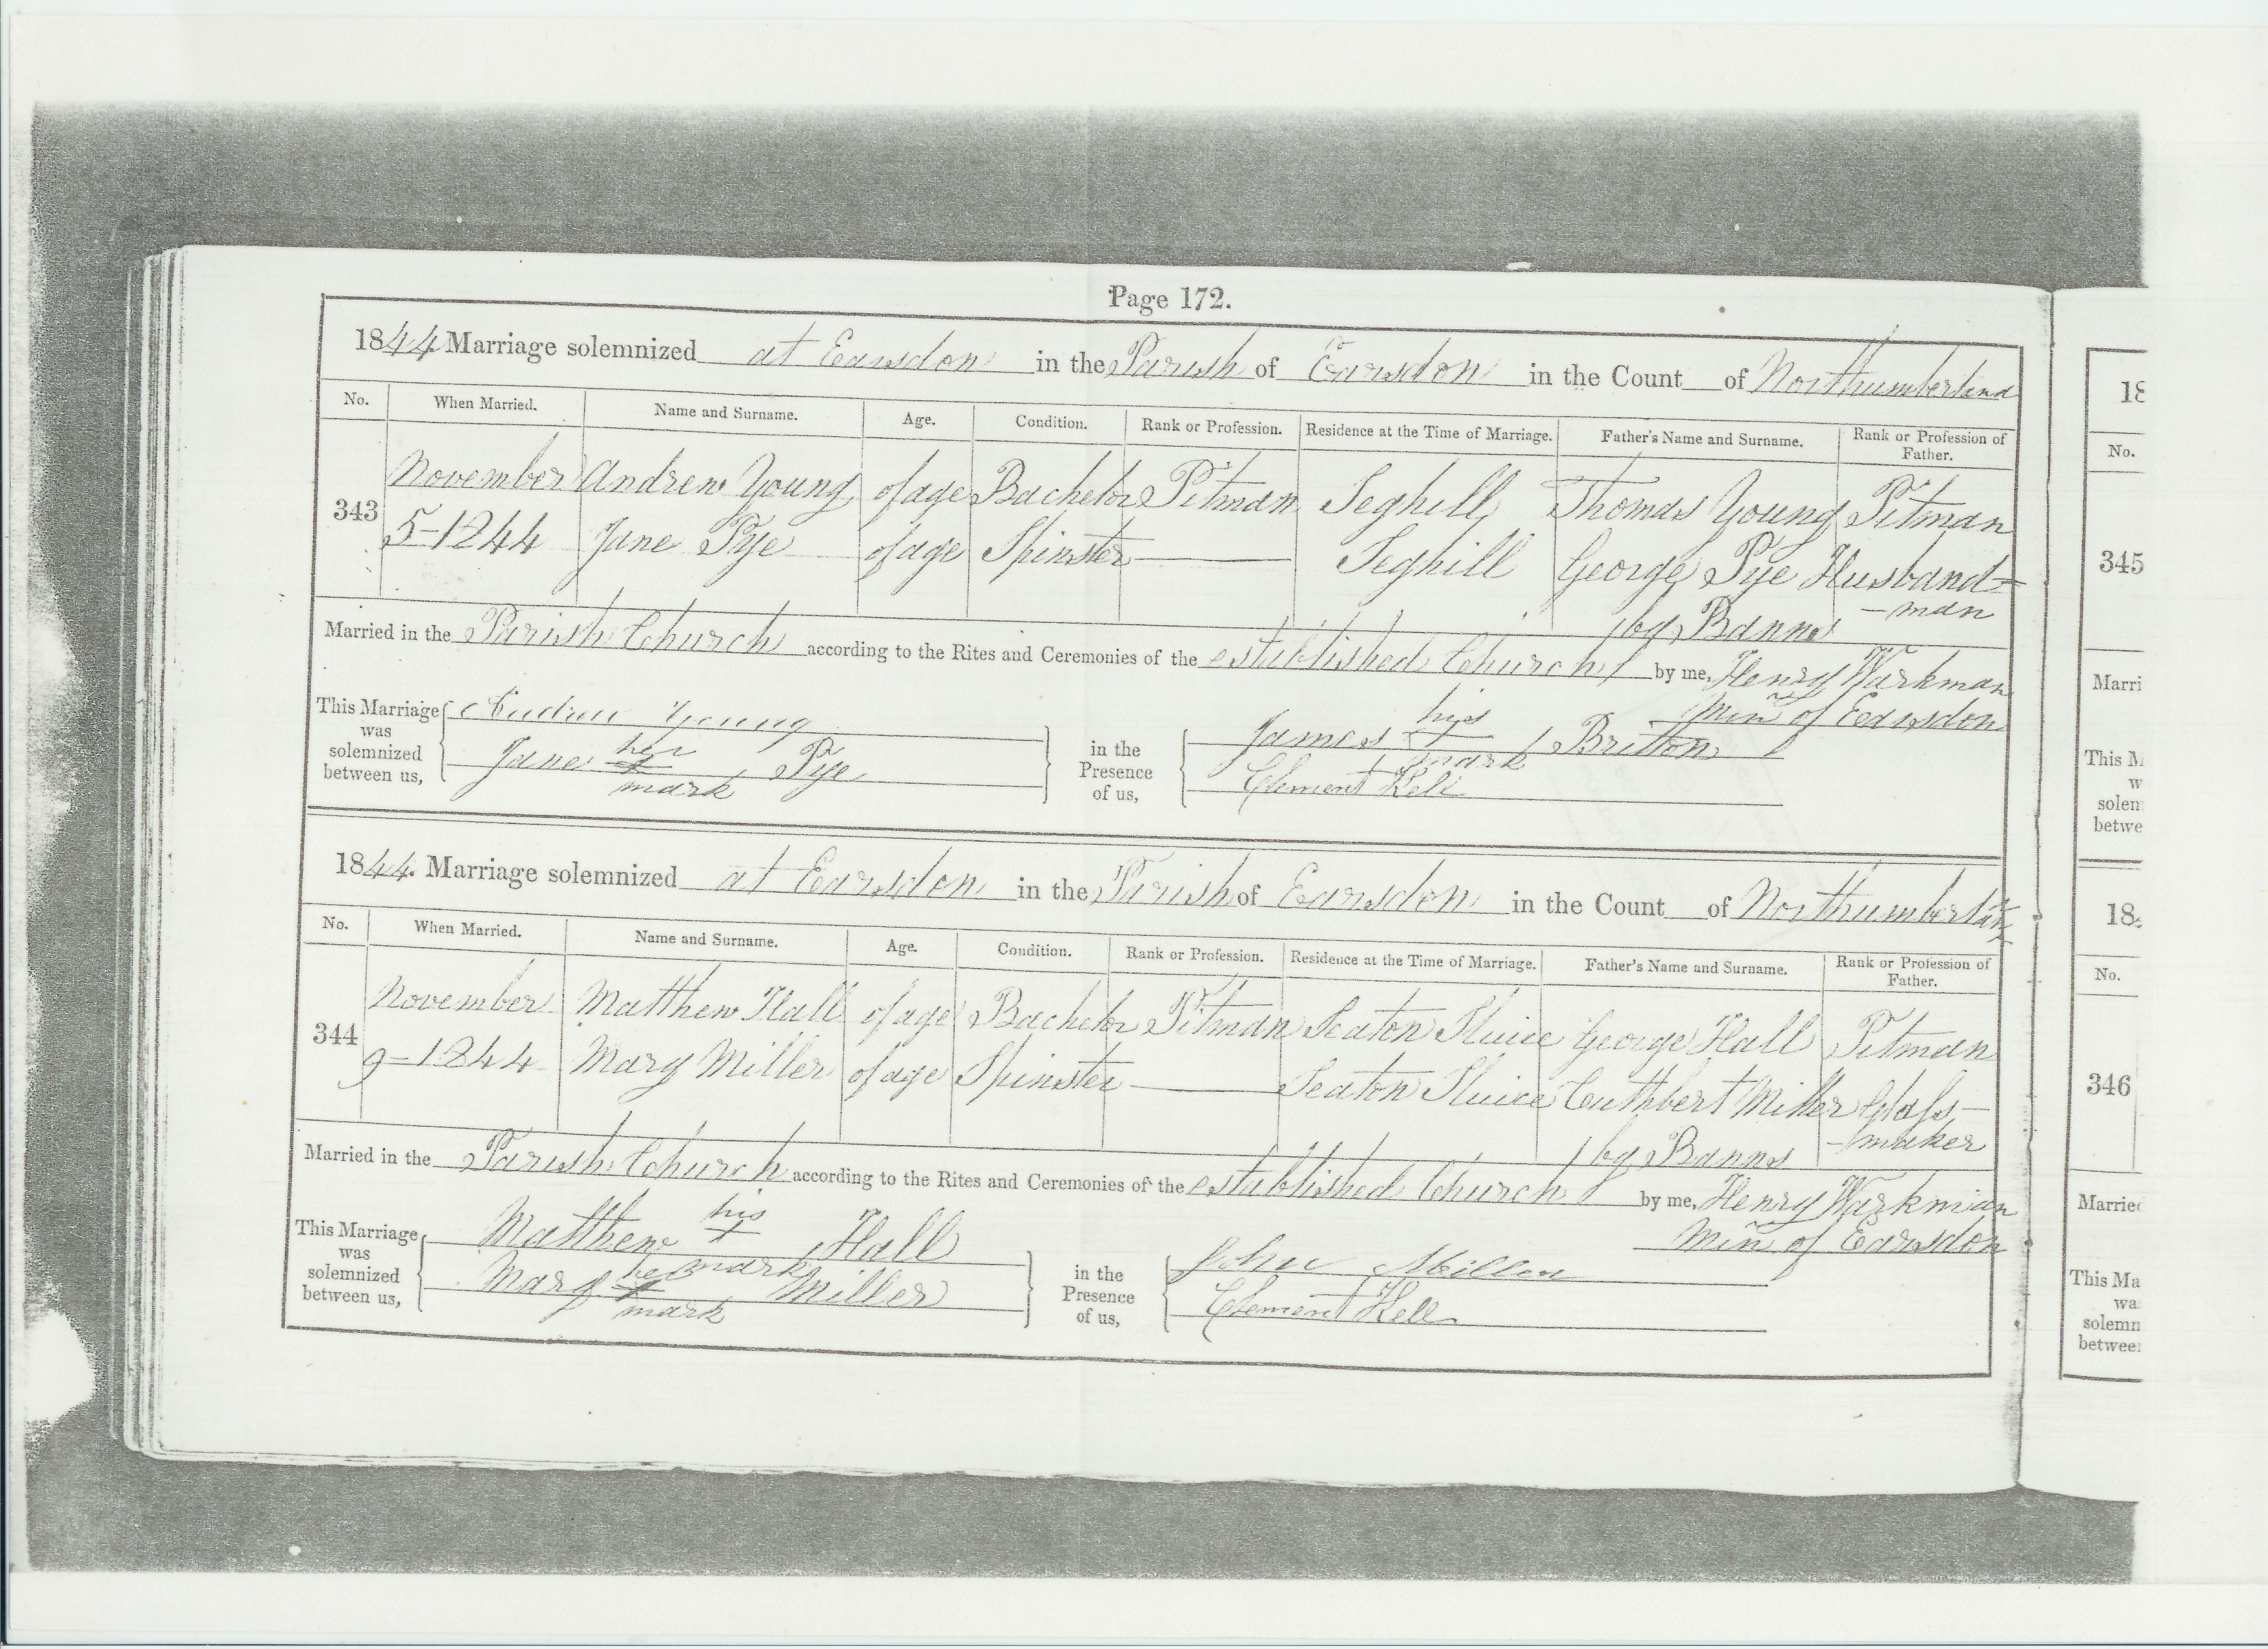 Page 172.
1844 Marriage solemnized at Earsdon in the Parish of Earsdon in the Count of Northumberland
No. When Married. Name and Surname. Age. Condition. Rank or Profession. Residence at the Time of Marriage. Father's Name and Surname. Rank or Profession of Father.
343 November Andrew Young of age Bachelor Pitman Seghill Thomas Young Pitman
5-1844 Jane Pye of age Spinster Seghill George Pye Husband=
-man
Married in the Parish Church according to the Rites and Ceremonies of the established Church by Banns by me, Henry Warkman
Minr of Earsdon
This Marriage was solemnized between us, Andrew Young
Jane her x mark Pye
in the Presence of us, James his x mark Britton
Clement Kell
1844. Marriage solemnized at Earsdon in the Parish of Earsdon in the Count of Northumberland
No. When Married. Name and Surname. Age. Condition. Rank or Profession. Residence at the Time of Marriage. Father's Name and Surname. Rank or Profession of Father.
344 November Matthew Hall of age Bachelor Pitman Seaton Sluice George Hall Pitman
9-1844 Mary Miller of age Spinster Seaton Sluice Cuthbert Miller Glass-
-maker
Married in the Parish Church according to the Rites and Ceremonies of the established Church by Banns by me, Henry Warkman
Minr of Earsdon
This Marriage was solemnized between us, Matthew his x mark Hall
Mary her x mark Miller
in the Presence of us, John Miller
Clement Kell
18
No.
345
Marri
This M
w
solen
betwe
18
No.
346
Married
This Ma
wa
solemn
between